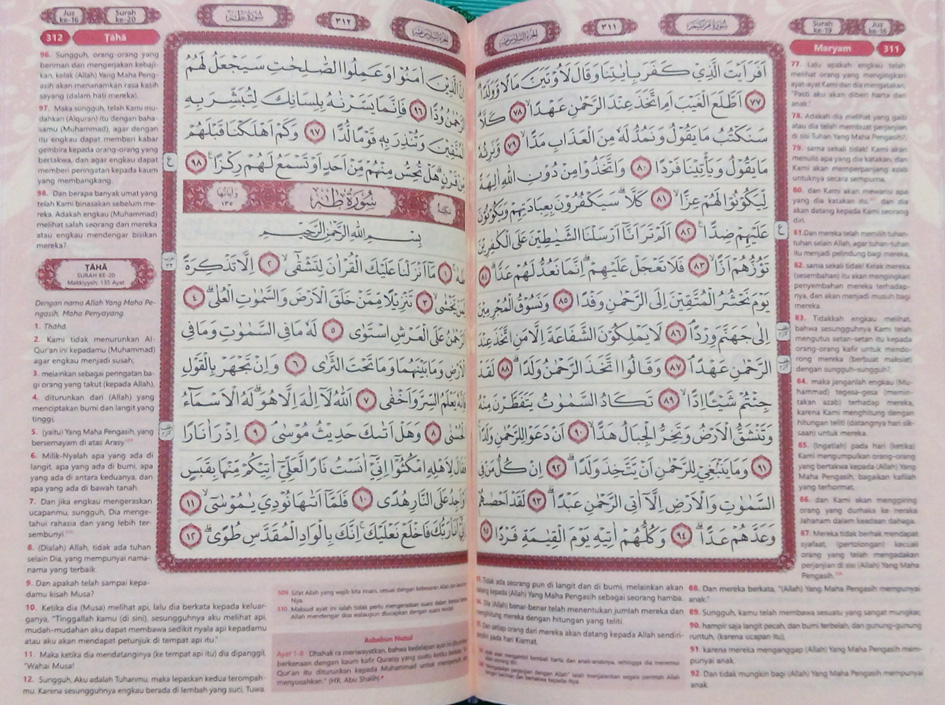 سورة مريم
٣١١
الجزء السادس عشر
اَفَرَاَيْتَ الَّذِيْ كَفَرَ بِاٰيٰتِنَا وَقَالَ لَاُوْتَيَنَّ مَالًا وَّوَلَدًا
٧٧ اَطَّلَعَ الْغَيْبَ اَمِ اتَّخَذَ عِنْدَ الرَّحْمٰنِ عَهْدًا ٧٨ كَلَّا
سَنَكْتُبُ مَا يَقُوْلُ وَنَمُدُّ لَهٗ مِنَ الْعَذَابِ مَدًّا ٧٩ وَّنَرِثُهٗ
مَا يَقُوْلُ وَيَأْتِيْنَا فَرْدًا ٨٠ وَاتَّخَذُوْا مِنْ دُوْنِ اللّٰهِ اٰلِهَةً
لِّيَكُوْنُوْا لَهُمْ عِزًّا ٨١ كَلَّا سَيَكْفُرُوْنَ بِعِبَادَتِهِمْ وَيَكُوْنُوْنَ
عَلَيْهِمْ ضِدًّا ٨٢ اَلَمْ تَرَ اَنَّآ اَرْسَلْنَا الشَّيٰطِيْنَ عَلَى الْكٰفِرِيْنَ
تَؤُزُّهُمْ اَزًّا ٨٣ فَلَا تَعْجَلْ عَلَيْهِمْ اِنَّمَا نَعُدُّ لَهُمْ عَدًّا ٨٤
يَوْمَ نَحْشُرُ الْمُتَّقِيْنَ اِلَى الرَّحْمٰنِ وَفْدًا ٨٥ وَنَسُوْقُ الْمُجْرِمِيْنَ
اِلٰى جَهَنَّمَ وِرْدًا ٨٦ لَا يَمْلِكُوْنَ الشَّفَاعَةَ اِلَّا مَنِ اتَّخَذَ عِنْدَ
الرَّحْمٰنِ عَهْدًا ٨٧ وَقَالُوا اتَّخَذَ الرَّحْمٰنُ وَلَدًا ٨٨ لَقَدْ
جِئْتُمْ شَيْـًٔا اِدًّا ٨٩ تَكَادُ السَّمٰوٰتُ يَتَفَطَّرْنَ مِنْهُ
وَتَنْشَقُّ الْاَرْضُ وَتَخِرُّ الْجِبَالُ هَدًّا ٩٠ اَنْ دَعَوْا لِلرَّحْمٰنِ وَلَدًا
٩١ وَمَا يَنْۢبَغِيْ لِلرَّحْمٰنِ اَنْ يَّتَّخِذَ وَلَدًا ٩٢ اِنْ كُلُّ مَنْ فِى
السَّمٰوٰتِ وَالْاَرْضِ اِلَّآ اٰتِى الرَّحْمٰنِ عَبْدًا ٩٣ لَقَدْ اَحْصٰىهُمْ
وَعَدَّهُمْ عَدًّا ٩٤ وَكُلُّهُمْ اٰتِيْهِ يَوْمَ الْقِيٰمَةِ فَرْدًا ٩٥
Surah ke-19
Juz ke-16
Maryam 311
77. Lalu apakah engkau telah
melihat orang yang mengingkari
ayat-ayat Kami dan dia mengatakan,
"Pasti aku akan diberi harta dan
anak."
78. Adakah dia melihat yang gaib
atau dia telah membuat perjanjian
di sisi Tuhan Yang Maha Pengasih?
79. sama sekali tidak! Kami akan
menulis apa yang dia katakan, dan
Kami akan memperpanjang azab
untuknya secara sempurna.
80. dan Kami akan mewarisi apa
yang dia katakan itu, dan dia
akan datang kepada Kami seorang
diri.
81. Dan mereka telah memilih tuhan-
tuhan selain Allah, agar tuhan-tuhan
itu menjadi pelindung bagi mereka.
82. sama sekali tidak! Kelak mereka
(sesembahan) itu akan mengingkari
penyembahan mereka terhadap-
nya, dan akan menjadi musuh bagi
mereka.
83. Tidakkah engkau melihat,
bahwa sesungguhnya Kami telah
mengutus setan-setan itu kepada
orang-orang kafir untuk mendo-
rong mereka (berbuat maksiat)
dengan sungguh-sungguh?
84. maka janganlah engkau (Mu-
hammad) tergesa-gesa (memin-
takan azab) terhadap mereka,
karena Kami menghitung dengan
hitungan teliti (datangnya hari sik-
saan) untuk mereka.
85. (Ingatlah) pada hari (ketika)
Kami mengumpulkan orang-orang
yang bertakwa kepada (Allah) Yang
Maha Pengasih, bagaikan kafilah
yang terhormat.
86. dan Kami akan menggiring
orang yang durhaka ke neraka
Jahanam dalam keadaan dahaga.
87. Mereka tidak berhak mendapat
syafaat, (pertolongan) kecuali
orang yang telah mengadakan
perjanjian di sisi (Allah) Yang Maha
Pengasih.
88. Dan mereka berkata, "(Allah) Yang Maha Pengasih mempunyai
anak."
89. Sungguh, kamu telah membawa sesuatu yang sangat mungkar,
90. hampir saja langit pecah, dan bumi terbelah, dan gunung-gunung
runtuh, (karena ucapan itu),
91. karena mereka menganggap (Allah) Yang Maha Pengasih mem-
punyai anak.
92. Dan tidak mungkin bagi (Allah) Yang Maha Pengasih mempunyai
anak.
Tidak ada seorang pun di langit dan di bumi, melainkan akan
datang kepada (Allah) Yang Maha Pengasih sebagai seorang hamba.
Dia (Allah) benar-benar telah menentukan jumlah mereka dan
menghitung mereka dengan hitungan yang teliti.
Dan setiap orang dari mereka akan datang kepada Allah sendiri-
sendiri pada hari Kiamat.
سورة طه
٣١٢
الجزء السادس عشر
الَّذِيْنَ اٰمَنُوْا وَعَمِلُوا الصّٰلِحٰتِ سَيَجْعَلُ لَهُمُ
الرَّحْمٰنُ وُدًّا ٩٦ فَاِنَّمَا يَسَّرْنٰهُ بِلِسَانِكَ لِتُبَشِّرَ بِهِ
الْمُتَّقِيْنَ وَتُنْذِرَ بِهٖ قَوْمًا لُّدًّا ٩٧ وَكَمْ اَهْلَكْنَا قَبْلَهُمْ
مِّنْ قَرْنٍ هَلْ تُحِسُّ مِنْهُمْ مِّنْ اَحَدٍ اَوْ تَسْمَعُ لَهُمْ رِكْزًا ٩٨
مكية
سورة طٰهٰ
واياتها ١٣٥
بِسْمِ اللّٰهِ الرَّحْمٰنِ الرَّحِيْمِ
طٰهٰ ١ مَآ اَنْزَلْنَا عَلَيْكَ الْقُرْاٰنَ لِتَشْقٰٓى ٢ اِلَّا تَذْكِرَةً
لِّمَنْ يَّخْشٰى ٣ تَنْزِيْلًا مِّمَّنْ خَلَقَ الْاَرْضَ وَالسَّمٰوٰتِ الْعُلٰى ٤
اَلرَّحْمٰنُ عَلَى الْعَرْشِ اسْتَوٰى ٥ لَهٗ مَا فِى السَّمٰوٰتِ وَمَا فِى
الْاَرْضِ وَمَا بَيْنَهُمَا وَمَا تَحْتَ الثَّرٰى ٦ وَاِنْ تَجْهَرْ بِالْقَوْلِ
فَاِنَّهٗ يَعْلَمُ السِّرَّ وَاَخْفٰى ٧ اَللّٰهُ لَآ اِلٰهَ اِلَّا هُوَ لَهُ الْاَسْمَاۤءُ
الْحُسْنٰى ٨ وَهَلْ اَتٰىكَ حَدِيْثُ مُوْسٰى ٩ اِذْ رَاٰ نَارًا
فَقَالَ لِاَهْلِهِ امْكُثُوْٓا اِنِّيْٓ اٰنَسْتُ نَارًا لَّعَلِّيْٓ اٰتِيْكُمْ مِّنْهَا بِقَبَسٍ
اَوْ اَجِدُ عَلَى النَّارِ هُدًى ١٠ فَلَمَّآ اَتٰىهَا نُوْدِيَ يٰمُوْسٰٓى ١١
اِنِّيْٓ اَنَا۠ رَبُّكَ فَاخْلَعْ نَعْلَيْكَ اِنَّكَ بِالْوَادِ الْمُقَدَّسِ طُوًى ١٢
Juz ke-16
Surah ke-20
312 Ṭāhā
96. Sungguh, orang-orang yang
beriman dan mengerjakan kebaji-
kan, kelak (Allah) Yang Maha Peng-
asih akan menanamkan rasa kasih
sayang (dalam hati mereka).
97. Maka sungguh, telah Kami mu-
dahkan (Alquran) itu dengan baha-
samu (Muhammad), agar dengan
itu engkau dapat memberi kabar
gembira kepada orang-orang yang
bertakwa, dan agar engkau dapat
memberi peringatan kepada kaum
yang membangkang.
98. Dan berapa banyak umat yang
telah Kami binasakan sebelum me-
reka. Adakah engkau (Muhammad)
melihat salah seorang dari mereka
atau engkau mendengar bisikan
mereka?
ṬĀHĀ
SURAH KE-20
Makkiyyah: 135 Ayat
Dengan nama Allah Yang Maha Pe-
ngasih, Maha Penyayang.
1. Thāhā.
2. Kami tidak menurunkan Al-
Qur'an ini kepadamu (Muhammad)
agar engkau menjadi susah;
3. melainkan sebagai peringatan ba-
gi orang yang takut (kepada Allah),
4. diturunkan dari (Allah) yang
menciptakan bumi dan langit yang
tinggi,
5. (yaitu) Yang Maha Pengasih, yang
bersemayam di atas Arasy
6. Milik-Nyalah apa yang ada di
langit, apa yang ada di bumi, apa
yang ada di antara keduanya, dan
apa yang ada di bawah tanah.
7. Dan jika engkau mengeraskan
ucapanmu, sungguh, Dia menge-
tahui rahasia dan yang lebih ter-
sembunyi.
8. (Dialah) Allah, tidak ada tuhan
selain Dia, yang mempunyai nama-
nama yang terbaik.
9. Dan apakah telah sampai kepa-
damu kisah Musa?
10. Ketika dia (Musa) melihat api, lalu dia berkata kepada keluar-
ganya, "Tinggallah kamu (di sini), sesungguhnya aku melihat api,
mudah-mudahan aku dapat membawa sedikit nyala api kepadamu
atau aku akan mendapat petunjuk di tempat api itu."
11. Maka ketika dia mendatanginya (ke tempat api itu) dia dipanggil,
"Wahai Musa!
12. Sungguh, Aku adalah Tuhanmu, maka lepaskan kedua terompah-
mu. Karena sesungguhnya engkau berada di lembah yang suci, Tuwa.
509. Sifat Allah yang wajib kita imani, sesuai dengan kebesaran Allah dan kesucian-
Nya
510. Maksud ayat ini ialah tidak perlu mengeraskan suara dalam
Allah mendengar doa walaupun diucapkan dengan suara
Asbabun Nuzul
Ayat 1-8 : Dhahak ra meriwayatkan, bahwa kedelapan ayat ini
berkenaan dengan kaum kafir Quraisy yang
Qur'an itu diturunkan kepada Muhammad untuk
menyusahkan." (HR. Abu Shalih)